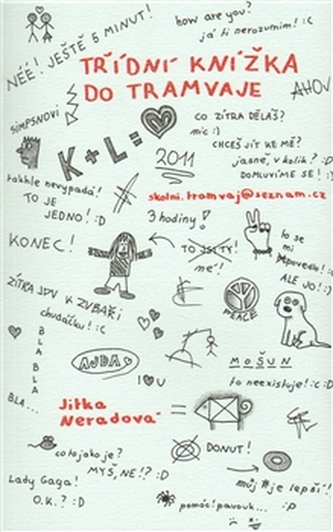 NÉÉ! JEŠTĚ 5 MINUT!
how are you?
já ti nerozumím! :C
TŘÍDNÍ KNÍŽKA
DO TRAMVAJE
AHOJ
SIMPSNOVI
CO ZÍTRA DĚLÁŠ?
nic :)
CHCEŠ JÍT KE MĚ?
jasně, v kolik? :D
DOMLUVÍME SE! :)
K + L =
2011
takhle nevypadá!
TO JE
JEDNO! :D
skolni.tramvaj@seznam.cz
3 hodiny!
KONEC!
TO JSI TY!
mé!
to se
mi
povedlo! :C
ALE JO! :)
ZÍTRA JDU K ZUBAŘI
chudáčku! :C
PEACE
BLA
BLA
BLA...
AJDA
I U
MOŠUN
to neexistuje! :C :D
Jitka
Neradová
=
co to jako je?
MYŠ, NE!? :D
DONUT!
můj je lepší!
:P
Lady Gaga!
O.K.? :D
pomóc! pavouk... :D